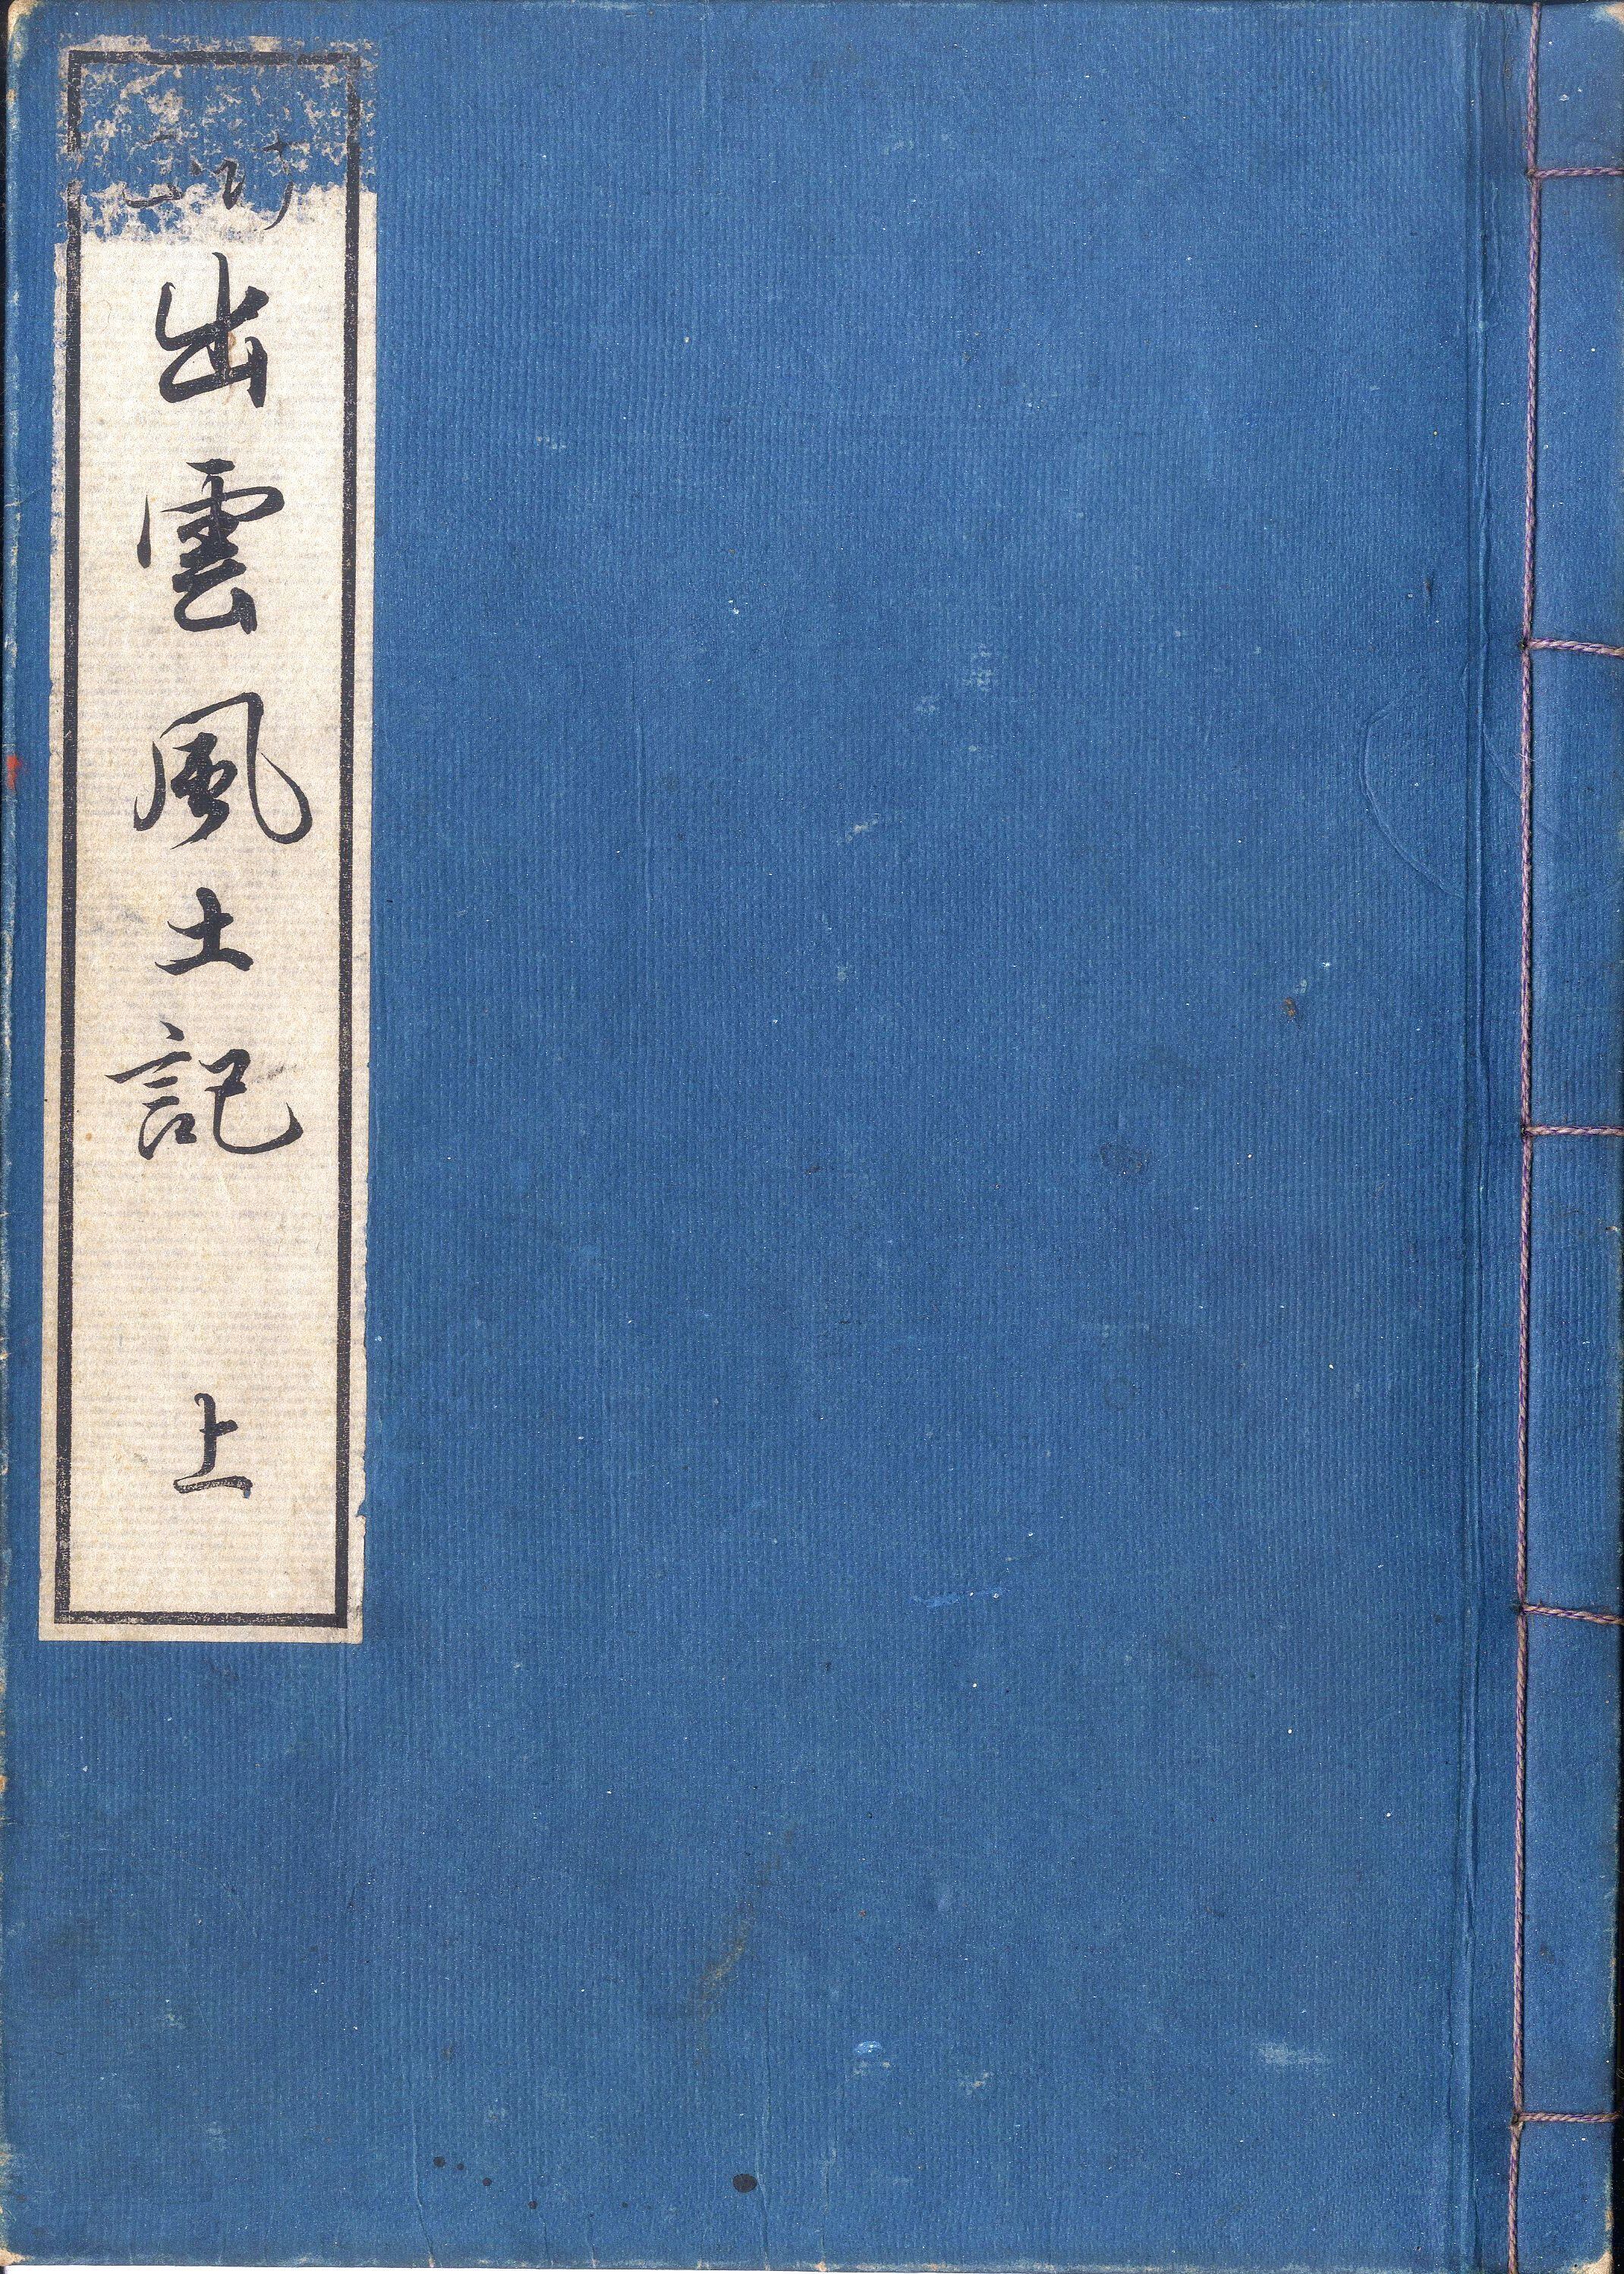 出雲風土記 上